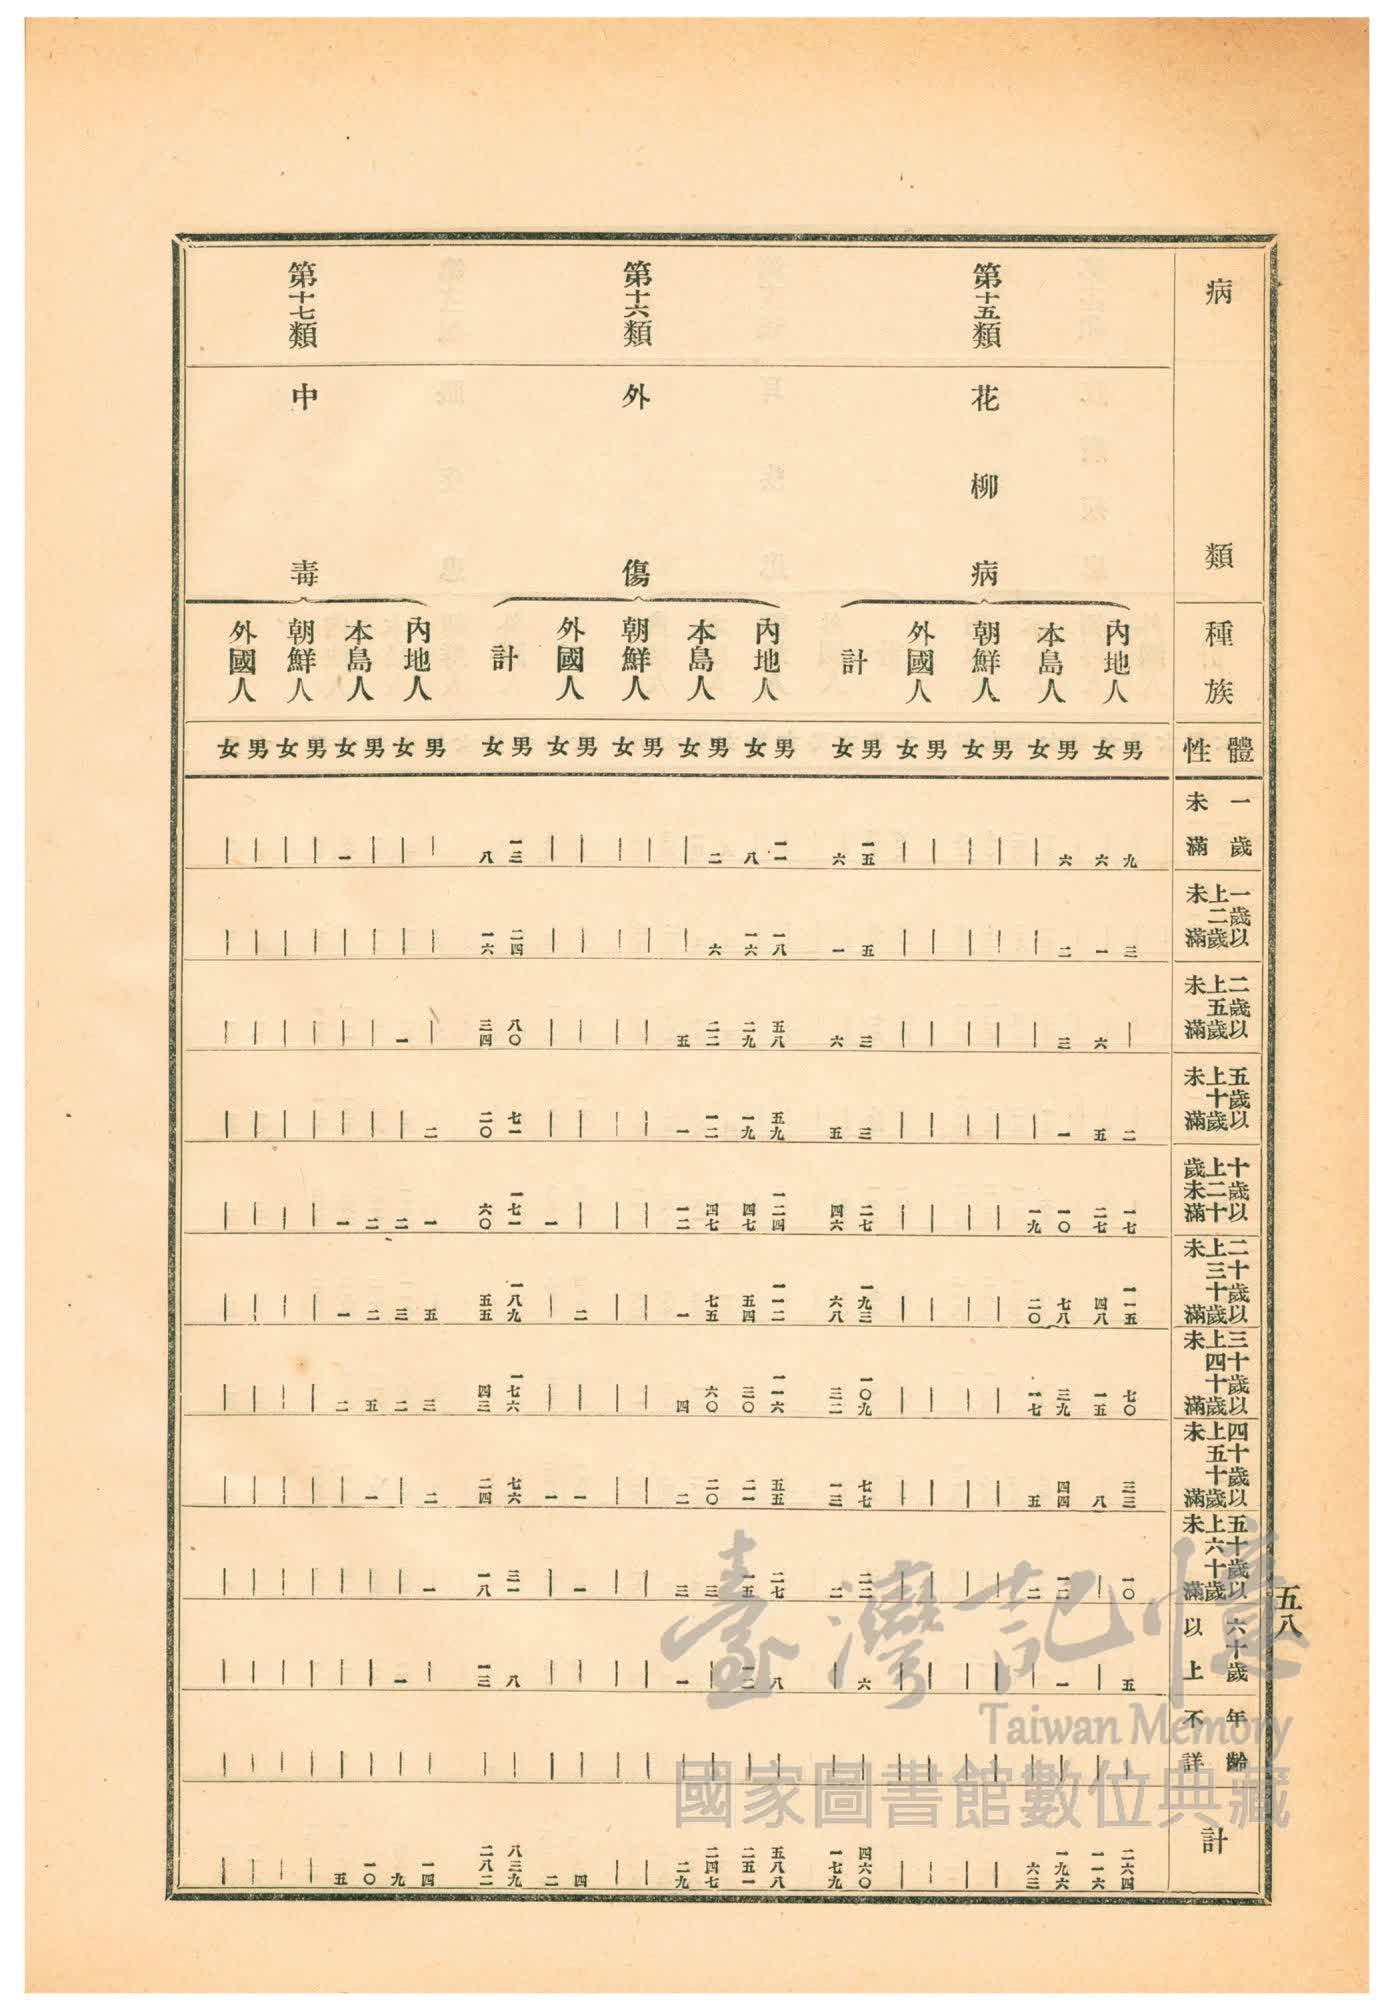 病類 種族 體性 一歲未滿 一歲以上二歲未滿 二歲以上五歲未滿 五歲以上十歲未滿 十歲以上二十歲未滿 二十歲以上三十歲未滿 三十歲以上四十歲未滿 四十歲以上五十歲未滿 五十歲以上六十歲未滿 六十歲以上 年齡不詳 計
第十五類 花柳病
內地人
男 九 三 | 二 一七 一一五 七〇 三三 一〇 五 | 二六四
女 六 一 六 五 二七 四八 一五 八 | | | 一一六
本島人
男 六 二 三 一 一〇 七八 三九 四四 一二 一 | 一九六
女 | | | | 一九 二〇 一七 五 二 | | 六三
朝鮮人
男 | | | | | | | | | | | |
女 | | | | | | | | | | | |
外國人
男 | | | | | | | | | | | |
女 | | | | | | | | | | | |
計
男 一五 五 三 三 二七 一九三 一〇九 七七 二二 六 | 四六〇
女 六 一 六 五 四六 六八 三二 一三 二 | | 一七九
第十六類 外傷
內地人
男 一一 一八 五八 五九 一二四 一一二 一一六 五五 二七 八 | 五八八
女 八 一六 二九 一九 四七 五四 三〇 二一 一五 一二 | 二五一
本島人
男 二 六 二二 一二 四七 七五 六〇 二〇 三 | | 二四七
女 | | 五 一 一二 一 四 二 三 一 | 二九
朝鮮人
男 | | | | | | | | | | | |
女 | | | | | | | | | | | |
外國人
男 | | | | | 二 | 一 一 | | 四
女 | | | | 一 | | 一 | | | 二
計
男 一三 二四 八〇 七一 一七一 一八九 一七六 七六 三一 八 | 八三九
女 八 一六 三四 二〇 六〇 五五 四三 二四 一八 一三 | 二八二
第十七類 中毒
內地人
男 | | | 二 一 五 三 二 一 | | 一四
女 | | 一 | 二 三 二 | | 一 | 九
本島人
男 | | | | 二 二 五 一 | | | 一〇
女 一 | | | 一 一 二 | | | | 五
朝鮮人
男 | | | | | | | | | | | |
女 | | | | | | | | | | | |
外國人
男 | | | | | | | | | | | |
女 | | | | | | | | | | | |
五八
臺灣記憶
Taiwan Memory
國家圖書館數位典藏